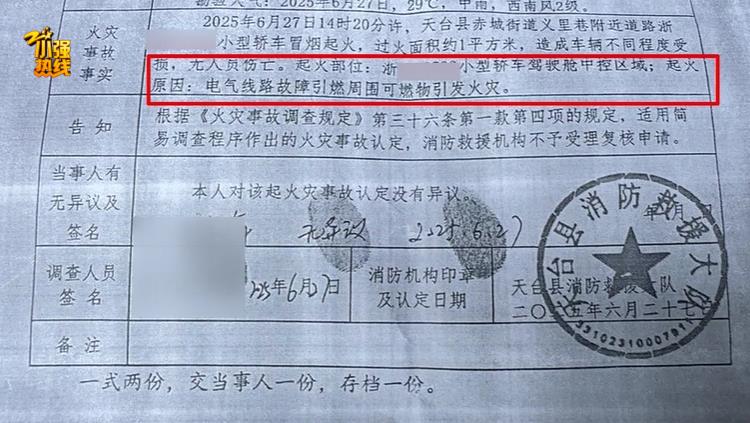 小强热线
勘验天气：2025年6月27日，29℃，中雨，西南风2级。
火灾
事故
事实
2025年6月27日14时20分许，天台县赤城街道义里巷附近道路浙
小型轿车冒烟起火，过火面积约1平方米，造成车辆不同程度受
损，无人员伤亡。起火部位：浙 小型轿车驾驶舱中控区域；起火
原因：电气线路故障引燃周围可燃物引发火灾。
告知
根据《火灾事故调查规定》第三十六条第一款第四项的规定，适用简
易调查程序作出的火灾事故认定，消防救援机构不予受理复核申请。
当事人有
无异议及
签名
本人对该起火灾事故认定没有异议。
年 月 日
无异议 2025.6.27
调查人员
签名
2025年6月27日
消防机构印章
及认定日期
天台县消防救援大队
二〇二五年六月二十七
天台县消防救援大队
33102310007911
备注
一式两份，交当事人一份，存档一份。